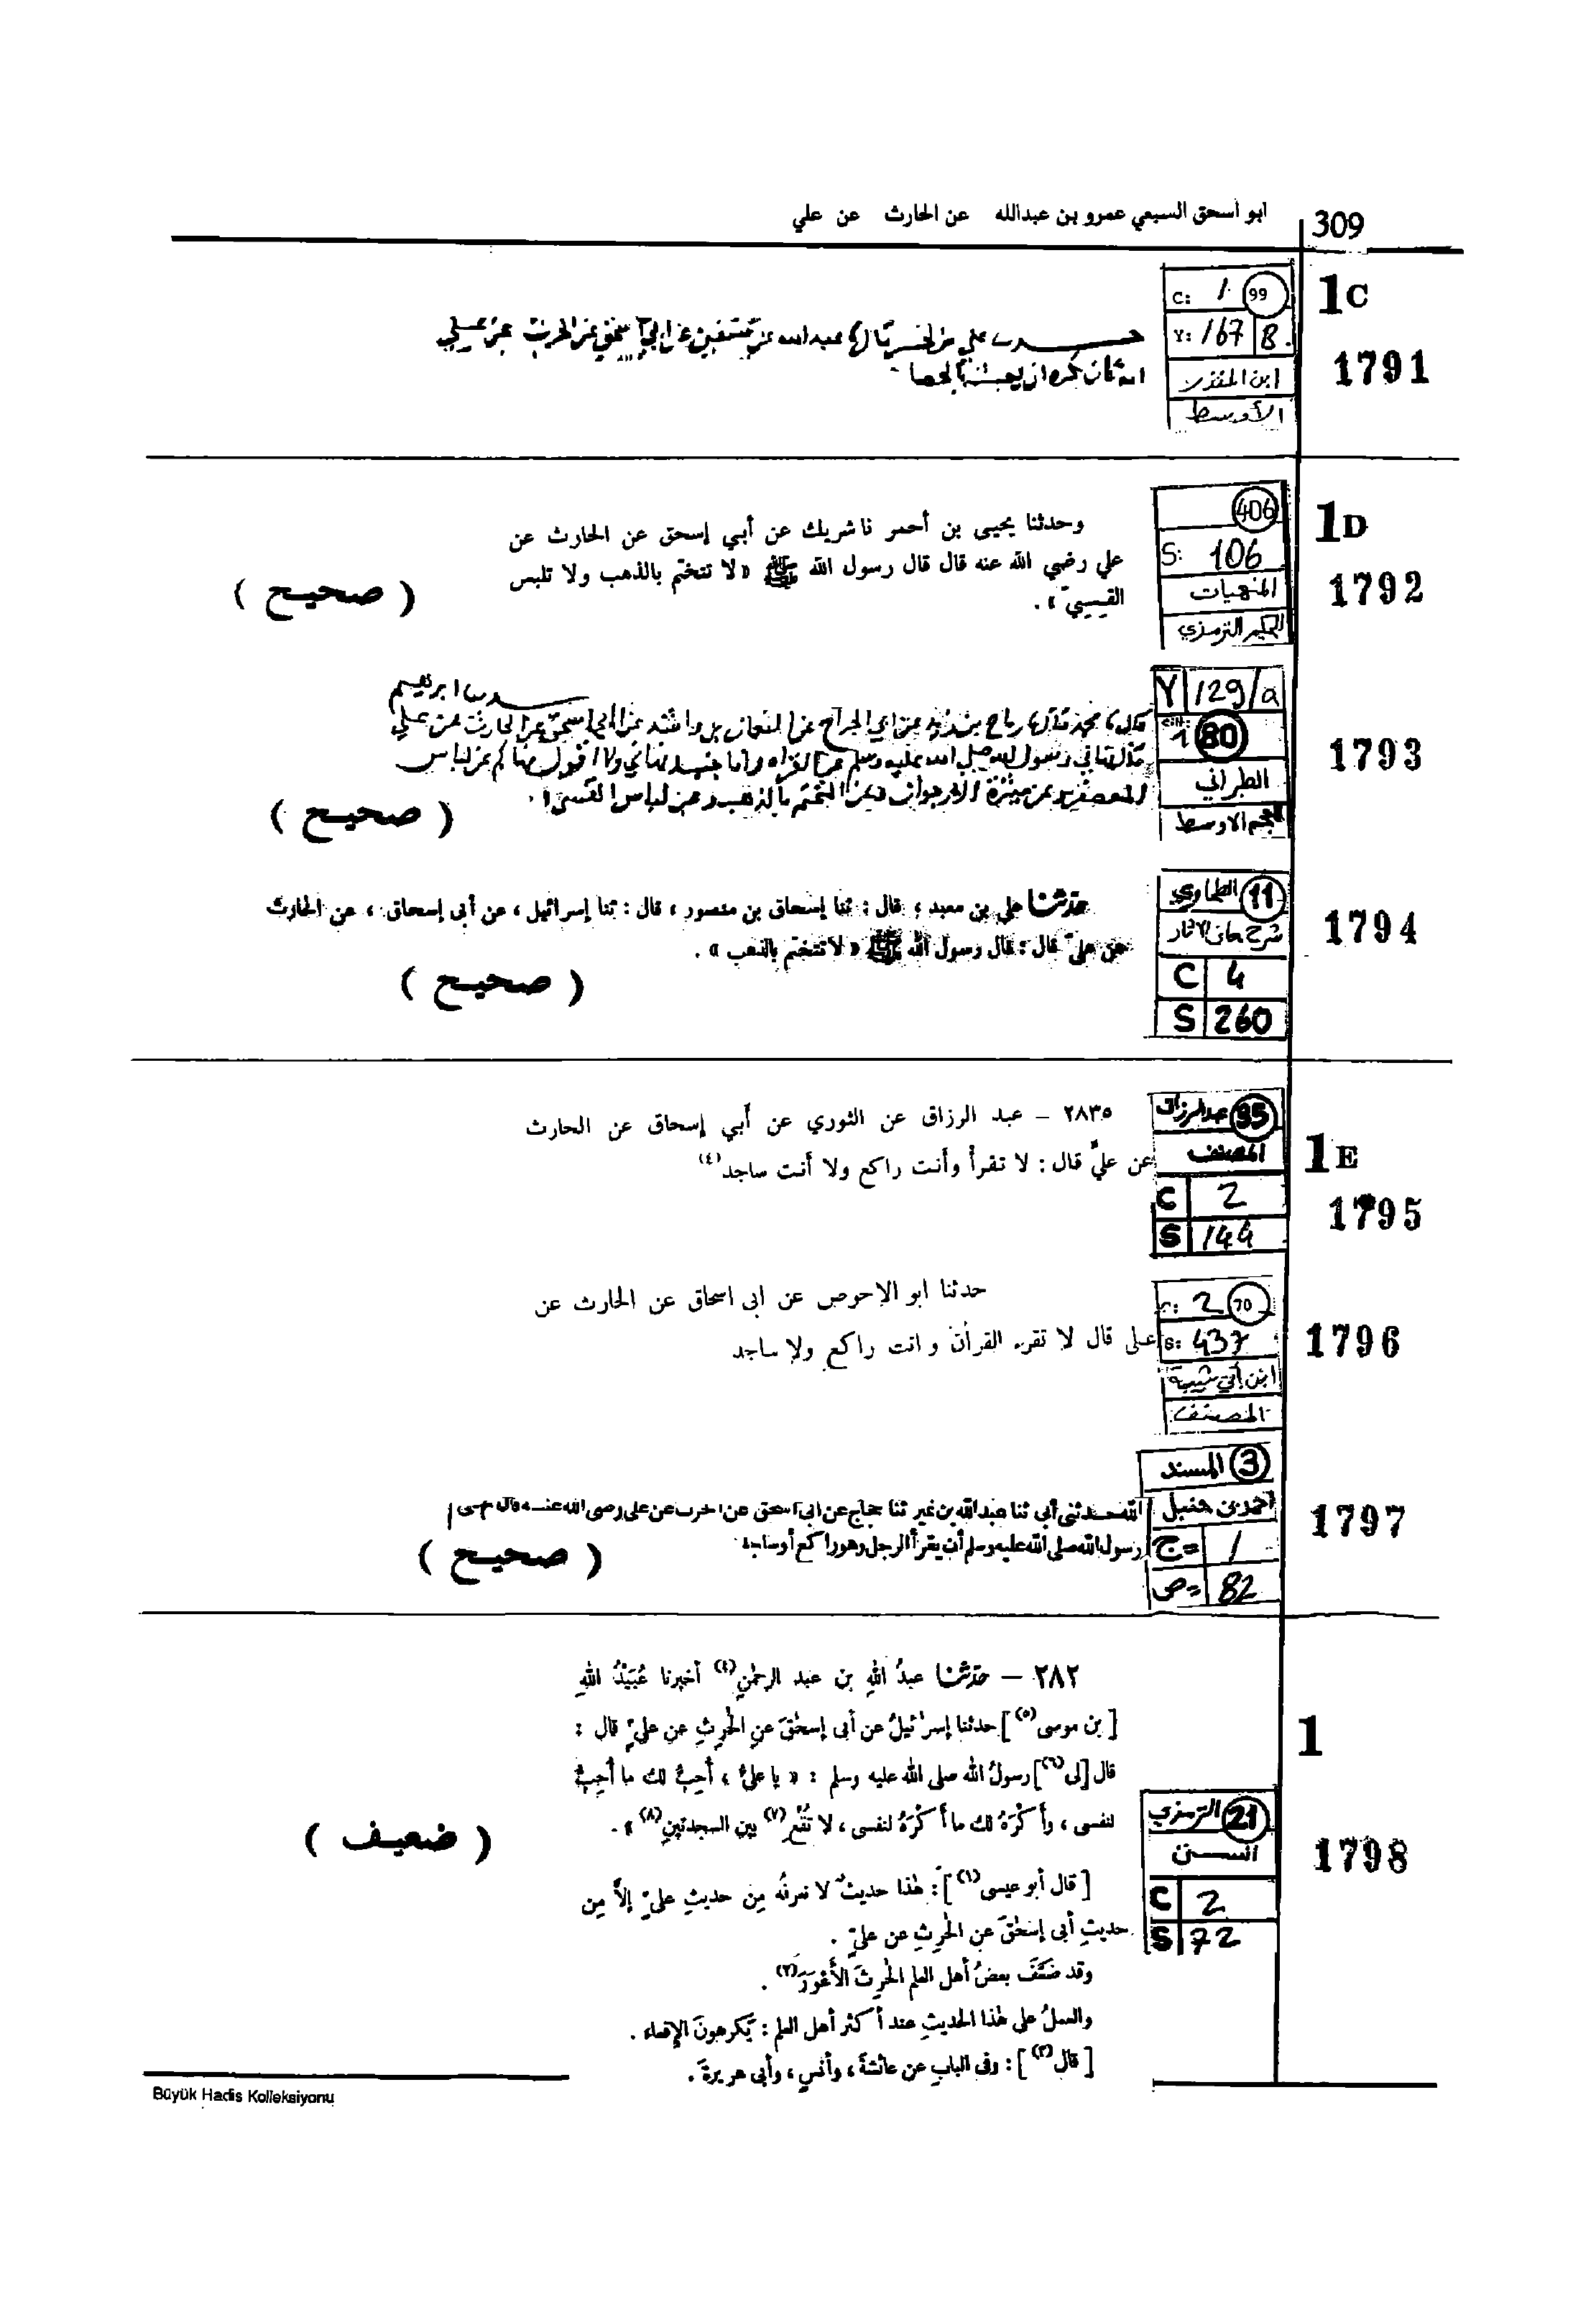 309
ابو اسحق السبعي عمرو بن عبدالله عن الحارث عن علي
1C
C: 1 99
Y: 167 B
ابن المنذر
الأوسط
1791
علي عن عبدالله عن سفين عن ابي اسحق عن الحرث عن علي
انه كان يكره ان يعبث بالحصا
1D
406
S: 106
المنهيات
الحكيم الترمذي
1792
وحدثنا يحيى بن أحمر نا شريك عن أبي إسحق عن الحارث عن
علي رضي الله عنه قال قال رسول الله ﷺ «لا تتختم بالذهب ولا تلبس
القيسيّ» .
( صحيح )
Y 129/a
cilt: 1 80
الطبراني
المعجم الاوسط
1793
ابرهيم
قال محمد قال رباح بن زيد عن ابي الجراح عن النعمان بن راشد عن ابي اسحق عن الحارث عن علي
قال نهاني رسول الله صلى الله عليه وسلم عن القراه وانا جنب نهاني ولا اقول نهاكم عن لباس
المعصفر وعن ميثرة الارجوان وعن التختم بالذهب وعن لباس القسي
( صحيح )
الطحاوي 11
شرح معاني الاثار
C 4
S 260
1794
حدّثنا علي بن معبد ، قال : ثنا إسحاق بن منصور ، قال : ثنا إسرائيل ، عن أبى إسحاق ، عن الحارث
عن علىّ قال : قال رسول الله ﷺ « لا تتختم بالذهب » .
( صحيح )
عبدالرزاق 35
المصنف
C 2
S 144
1E
1795
٢٨٣٥ – عبد الرزاق عن الثوري عن أبي إسحاق عن الحارث
عن عليّ قال : لا تقرأ وأنت راكع ولا أنت ساجد(٤)
C: 2 70
S: 437
ابن أبي شيبة
المصنف
1796
حدثنا ابو الاحوص عن ابى اسحاق عن الحارث عن
على قال لا تقرء القرأن و انت راكع ولا ساجد
المسند 3
احمد بن حنبل
ج= 1
ص= 82
1797
الله حدثنى أبى ثنا عبدالله بن نمير ثنا حجاج عن ابى اسحق عن الحرث عن على رضى الله عنه قال نهى
رسول الله صلى الله عليه وسلم أن يقرأ الرجل وهو راكع أو ساجد
( صحيح )
1
الترمذي 21
السنن
C 2
S 72
1798
٢٨٢ – حدّثنا عبدُ اللهِ بن عبد الرحمٰنِ(٤) أخبرنا عُبَيْدُ اللهِ
[ بن موسى(٥) ] حدثنا إسرائيلُ عن أبى إسحٰقَ عنِ الحٰرِثِ عن علىٍّ قال :
قال [ لى(٦) ] رسولُ الله صلى الله عليه وسلم : « يا علىُّ ، أُحِبُّ لك ما أُحِبُّ
لنفسى ، وأكْرَهُ لك ما أكْرَهُ لنفسى ، لا تُقْعِ(٧) بين السجدتينِ(٨) » .
( ضعيف )
[ قال أبو عيسى(١) ] : هٰذا حديثٌ لا نعرفُه مِن حديثِ علىٍّ إلاَّ مِن
حديثِ أبى إسحٰقَ عنِ الحٰرِثِ عن علىٍّ .
وقد ضَعَّفَ بعضُ أهل العلم الحٰرِثَ الأَعْوَرَ(٢) .
والعملُ على هٰذا الحديثِ عند أكثر أهل العلم : يَكرهونَ الإِقعاء .
[ قال(٣) ] : وفى البابِ عن عائشةَ ، وأنسٍ ، وأبى هريرةَ .
Büyük Hadis Kolleksiyonu